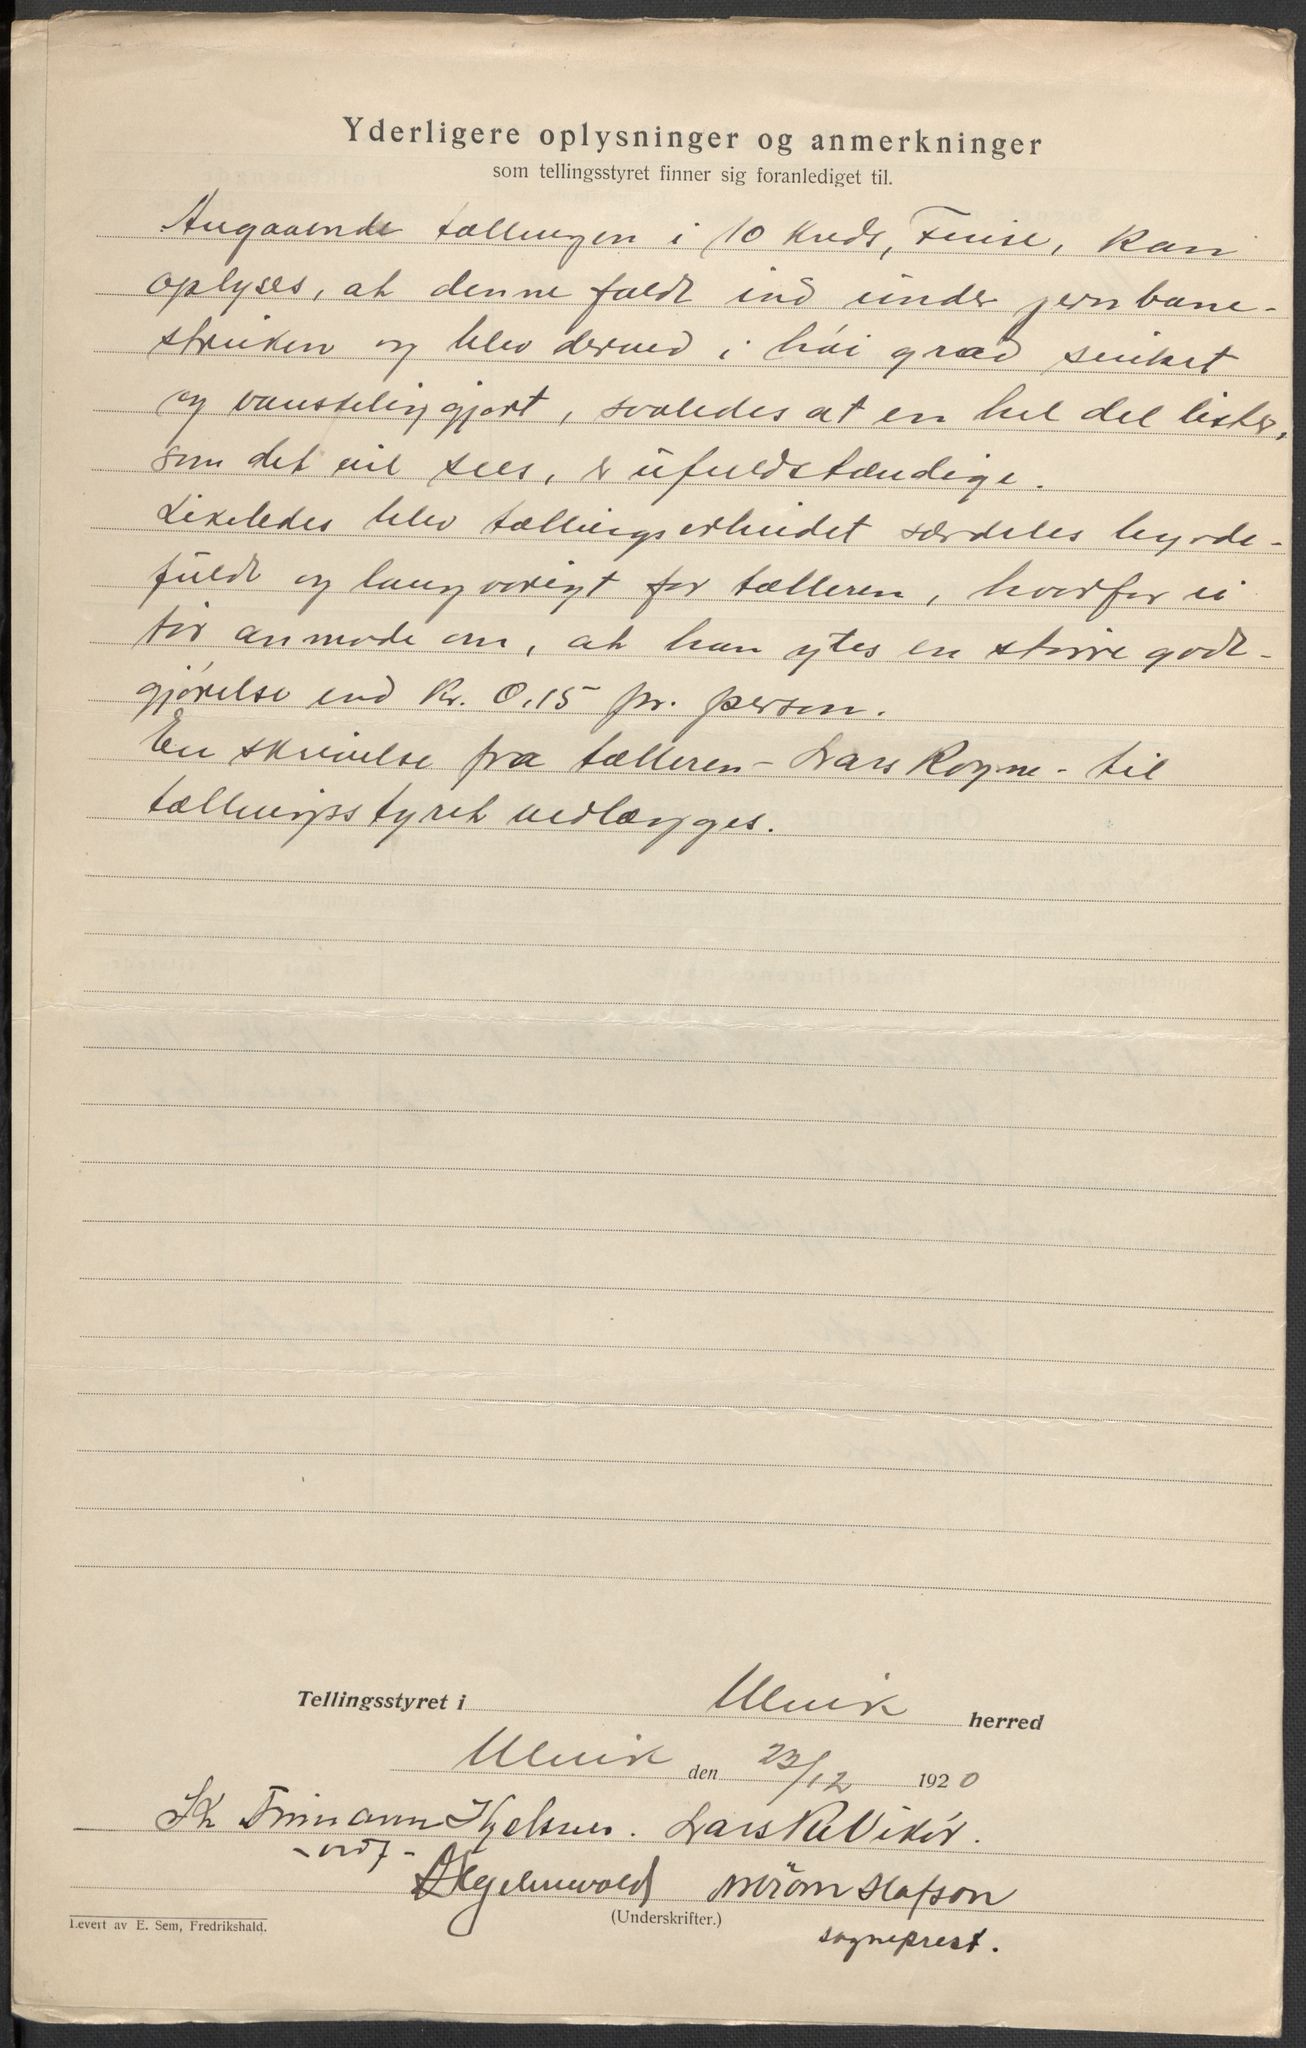 Yderligere oplysninger og anmerkninger
som tellingsstyret finner sig foranlediget til.
Angaaende tællingen i 10 kreds, Finse, kan
oplyses, at denne faldt ind under jernbane-
striken og blev derved i høi grad sinket
og vanskeliggjort, saaledes at en hel del lister,
som det vil sees, er ufuldstændige.
Likeledes blev tællingsarbeidet særdeles byrde-
fuldt og langvarigt for tælleren, hvorfor vi
tør anmode om, at han ytes en større godt-
gjørelse end kr. 0.15 pr. person.
En skrivelse fra tælleren - Lars Rogne - til
tællingsstyret vedlægges.
Tellingsstyret i Ulvik herred
Ulvik den 23/12 1920
Lars Vikør.
- ordf -
Olafson
(Underskrifter.)
Levert av E. Sem, Fredrikshald.
sogneprest.